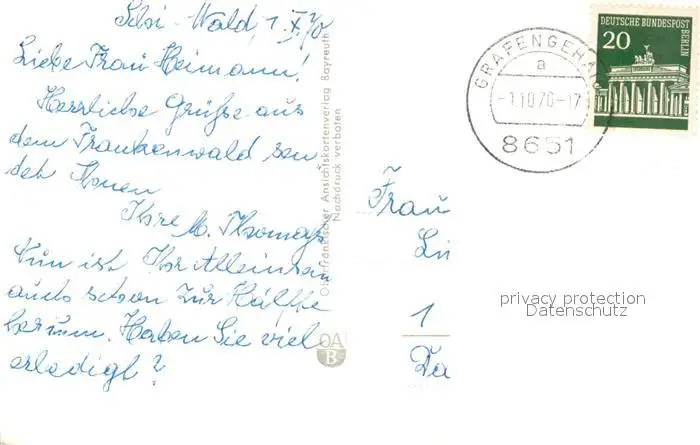 Schi-Wald, 1. X. 70
Liebe Frau Heimann!
Herrliche Grüße aus
dem Frankenwald sen
det Ihnen
Ihre M. Thomas
Nun ist Ihr Alleinsein
auch schon zur Hälfte
herum. Haben Sie viel
erledigt?
Oberfränkischer Ansichtskartenverlag Bayreuth
Nachdruck verboten
OA
B
GRAFENGEHA
a
-1.10.70-17
8651
DEUTSCHE BUNDESPOST
BERLIN
20
Frau
1
privacy protection
Datenschutz